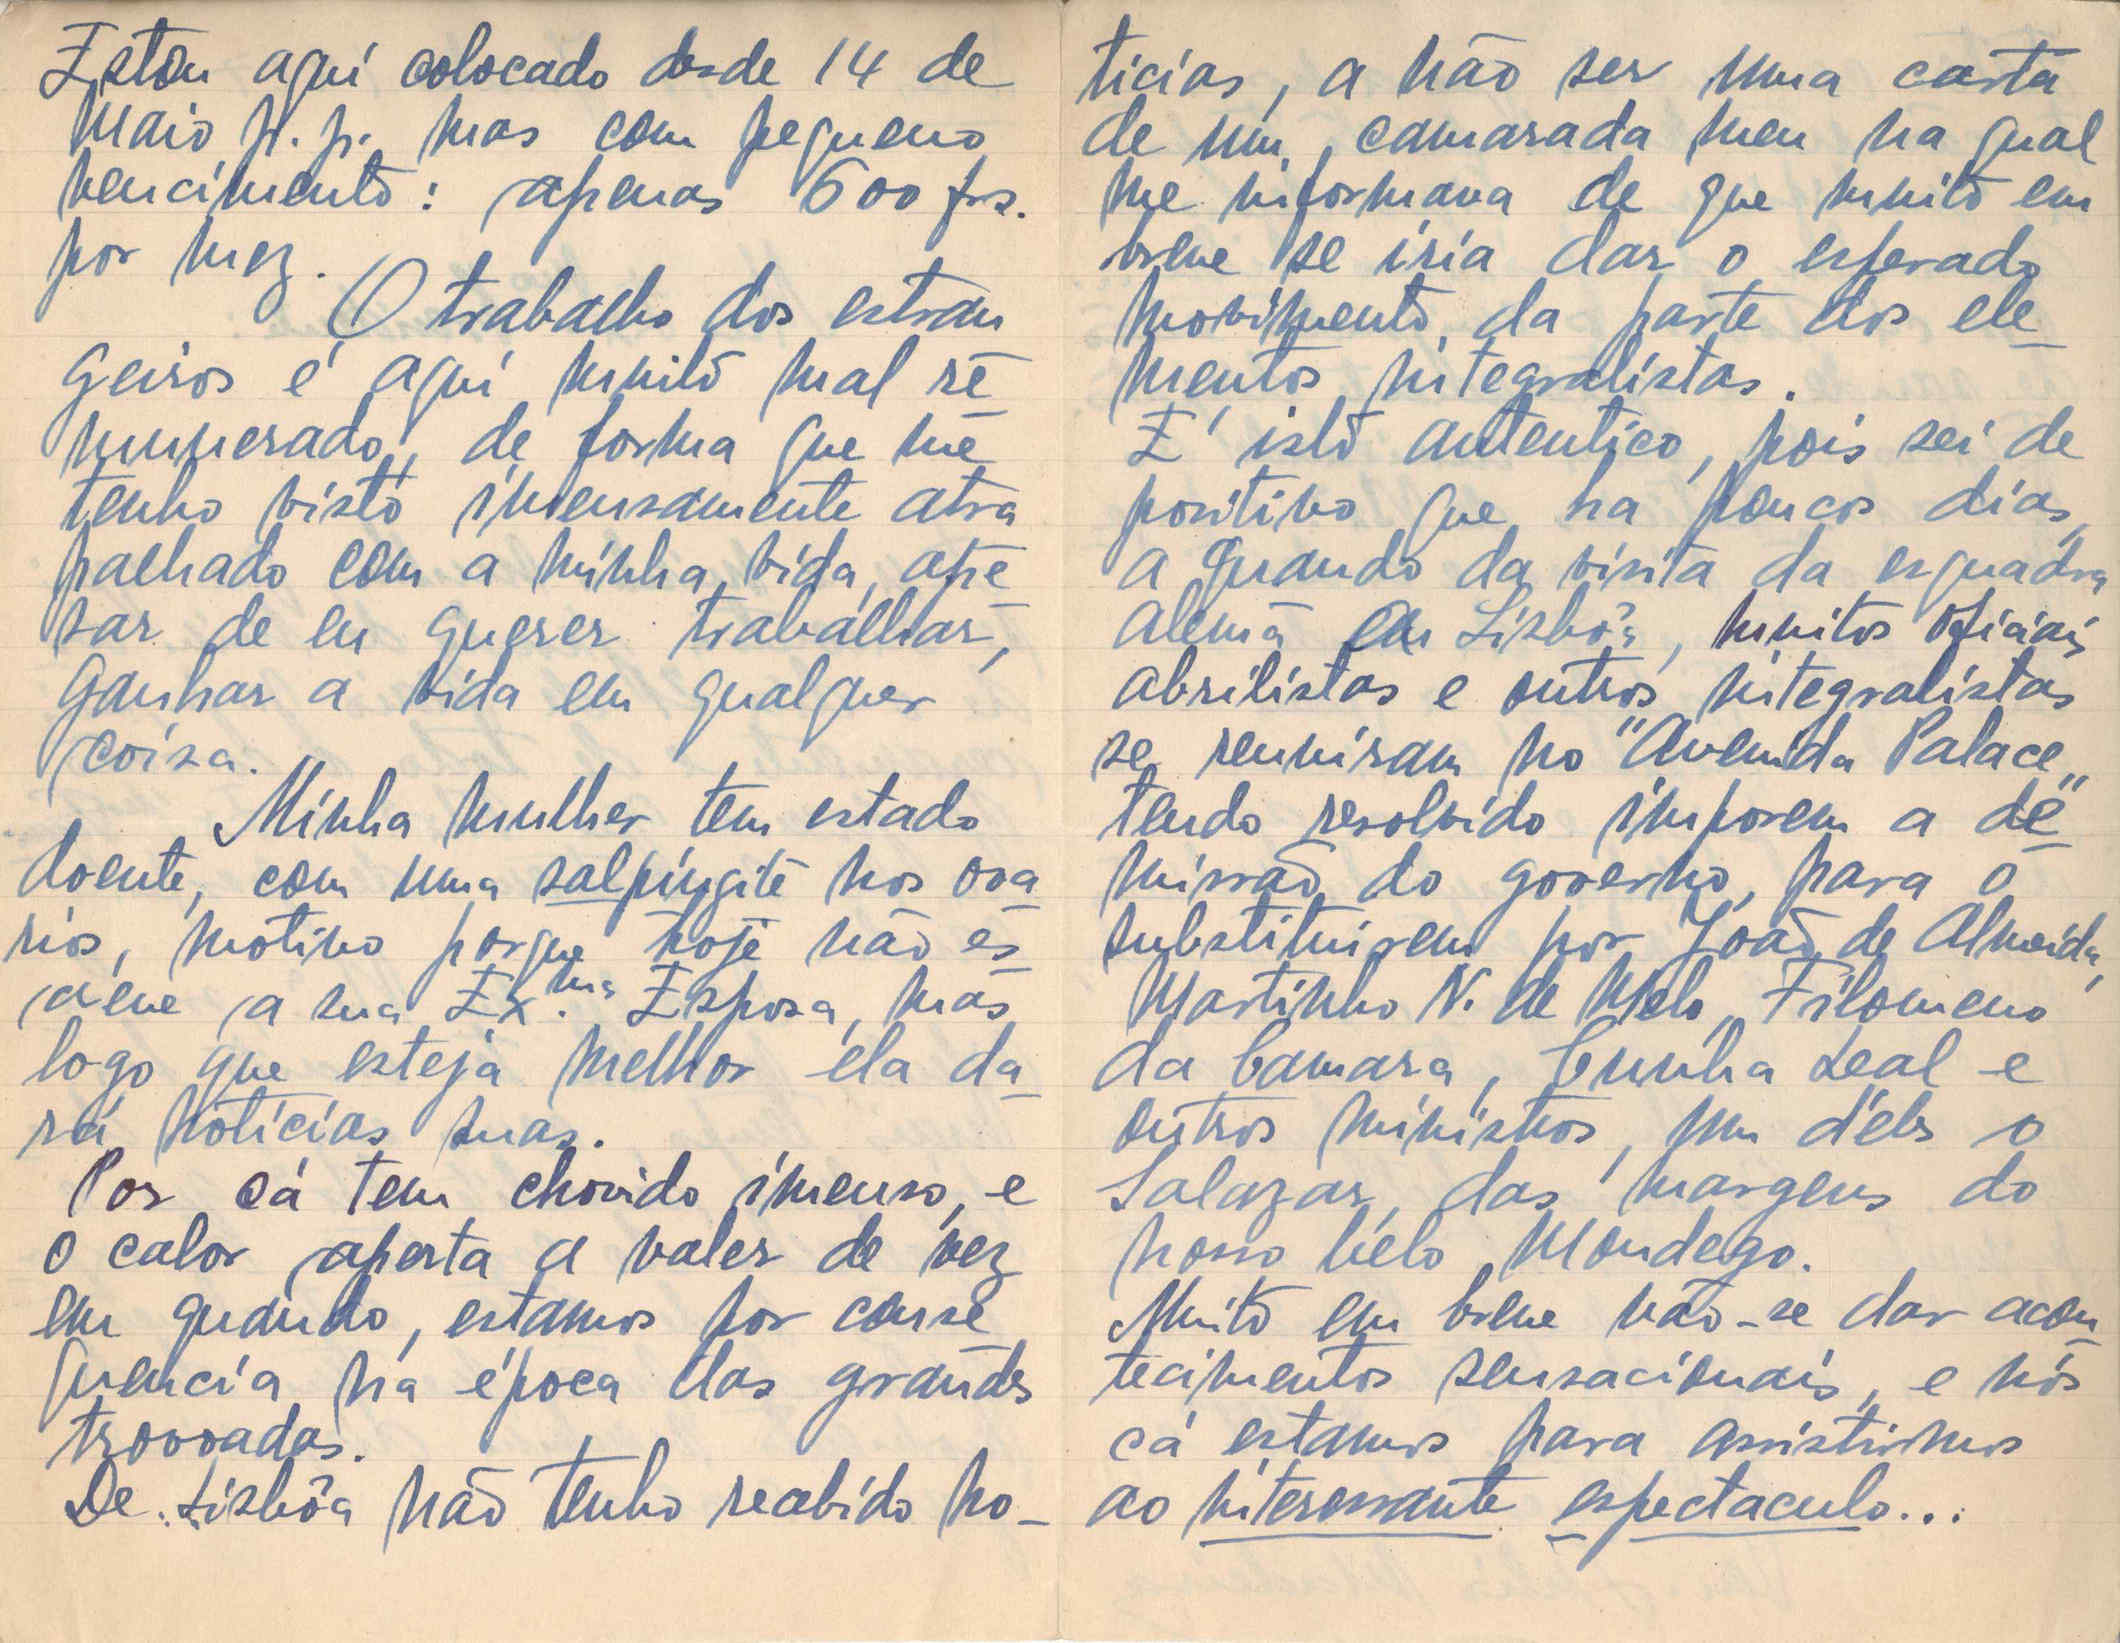 Estou aqui colocado desde 14 de
Maio p. p. mas com pequeno
vencimento: apenas 600 frs.
por mez.
O trabalho dos estran
geiros é aqui muito mal re
munerado, de forma que me
tenho visto imensamente atra
palhado com a minha vida, ape
sar de eu querer trabalhar,
ganhar a vida em qualquer
coisa.
Minha mulher tem estado
doente, com uma salpingite nos ova
rios, motivo porque hoje não es-
creve a sua Ex.ma Esposa, mas
logo que esteja melhor ela da-
rá noticias suas.
Por cá tem chovido imenso, e
o calor aperta a valer de vez
em quando, estamos por conse
quencia na época das grandes
trovoadas.
De Lisbôa não tenho recebido no-
ticias, a não ser uma carta
de um camarada meu na qual
me informava de que muito em
breve se iria dar o esperado
movimento da parte dos ele-
mentos integralistas.
É isto autentico, pois sei de
positivo que ha poucos dias,
a quando da visita da esquadra
Alemã em Lisbôa, muitos oficiais
abrilistas e outros integralistas
se reuniram no "Avenida Palace"
tendo resolvido imporem a de-
missão do governo, para o
substituirem por João de Almeida,
Martinho N. de Melo, Filomeno
da Camara, Cunha Leal e
outros ministros, um d'eles o
Salazar, das margens do
nosso belo Mondego.
Muito em breve vão-se dar acon-
tecimentos sensacionais, e nós
cá estamos para assistirmos
ao interessante espectaculo...